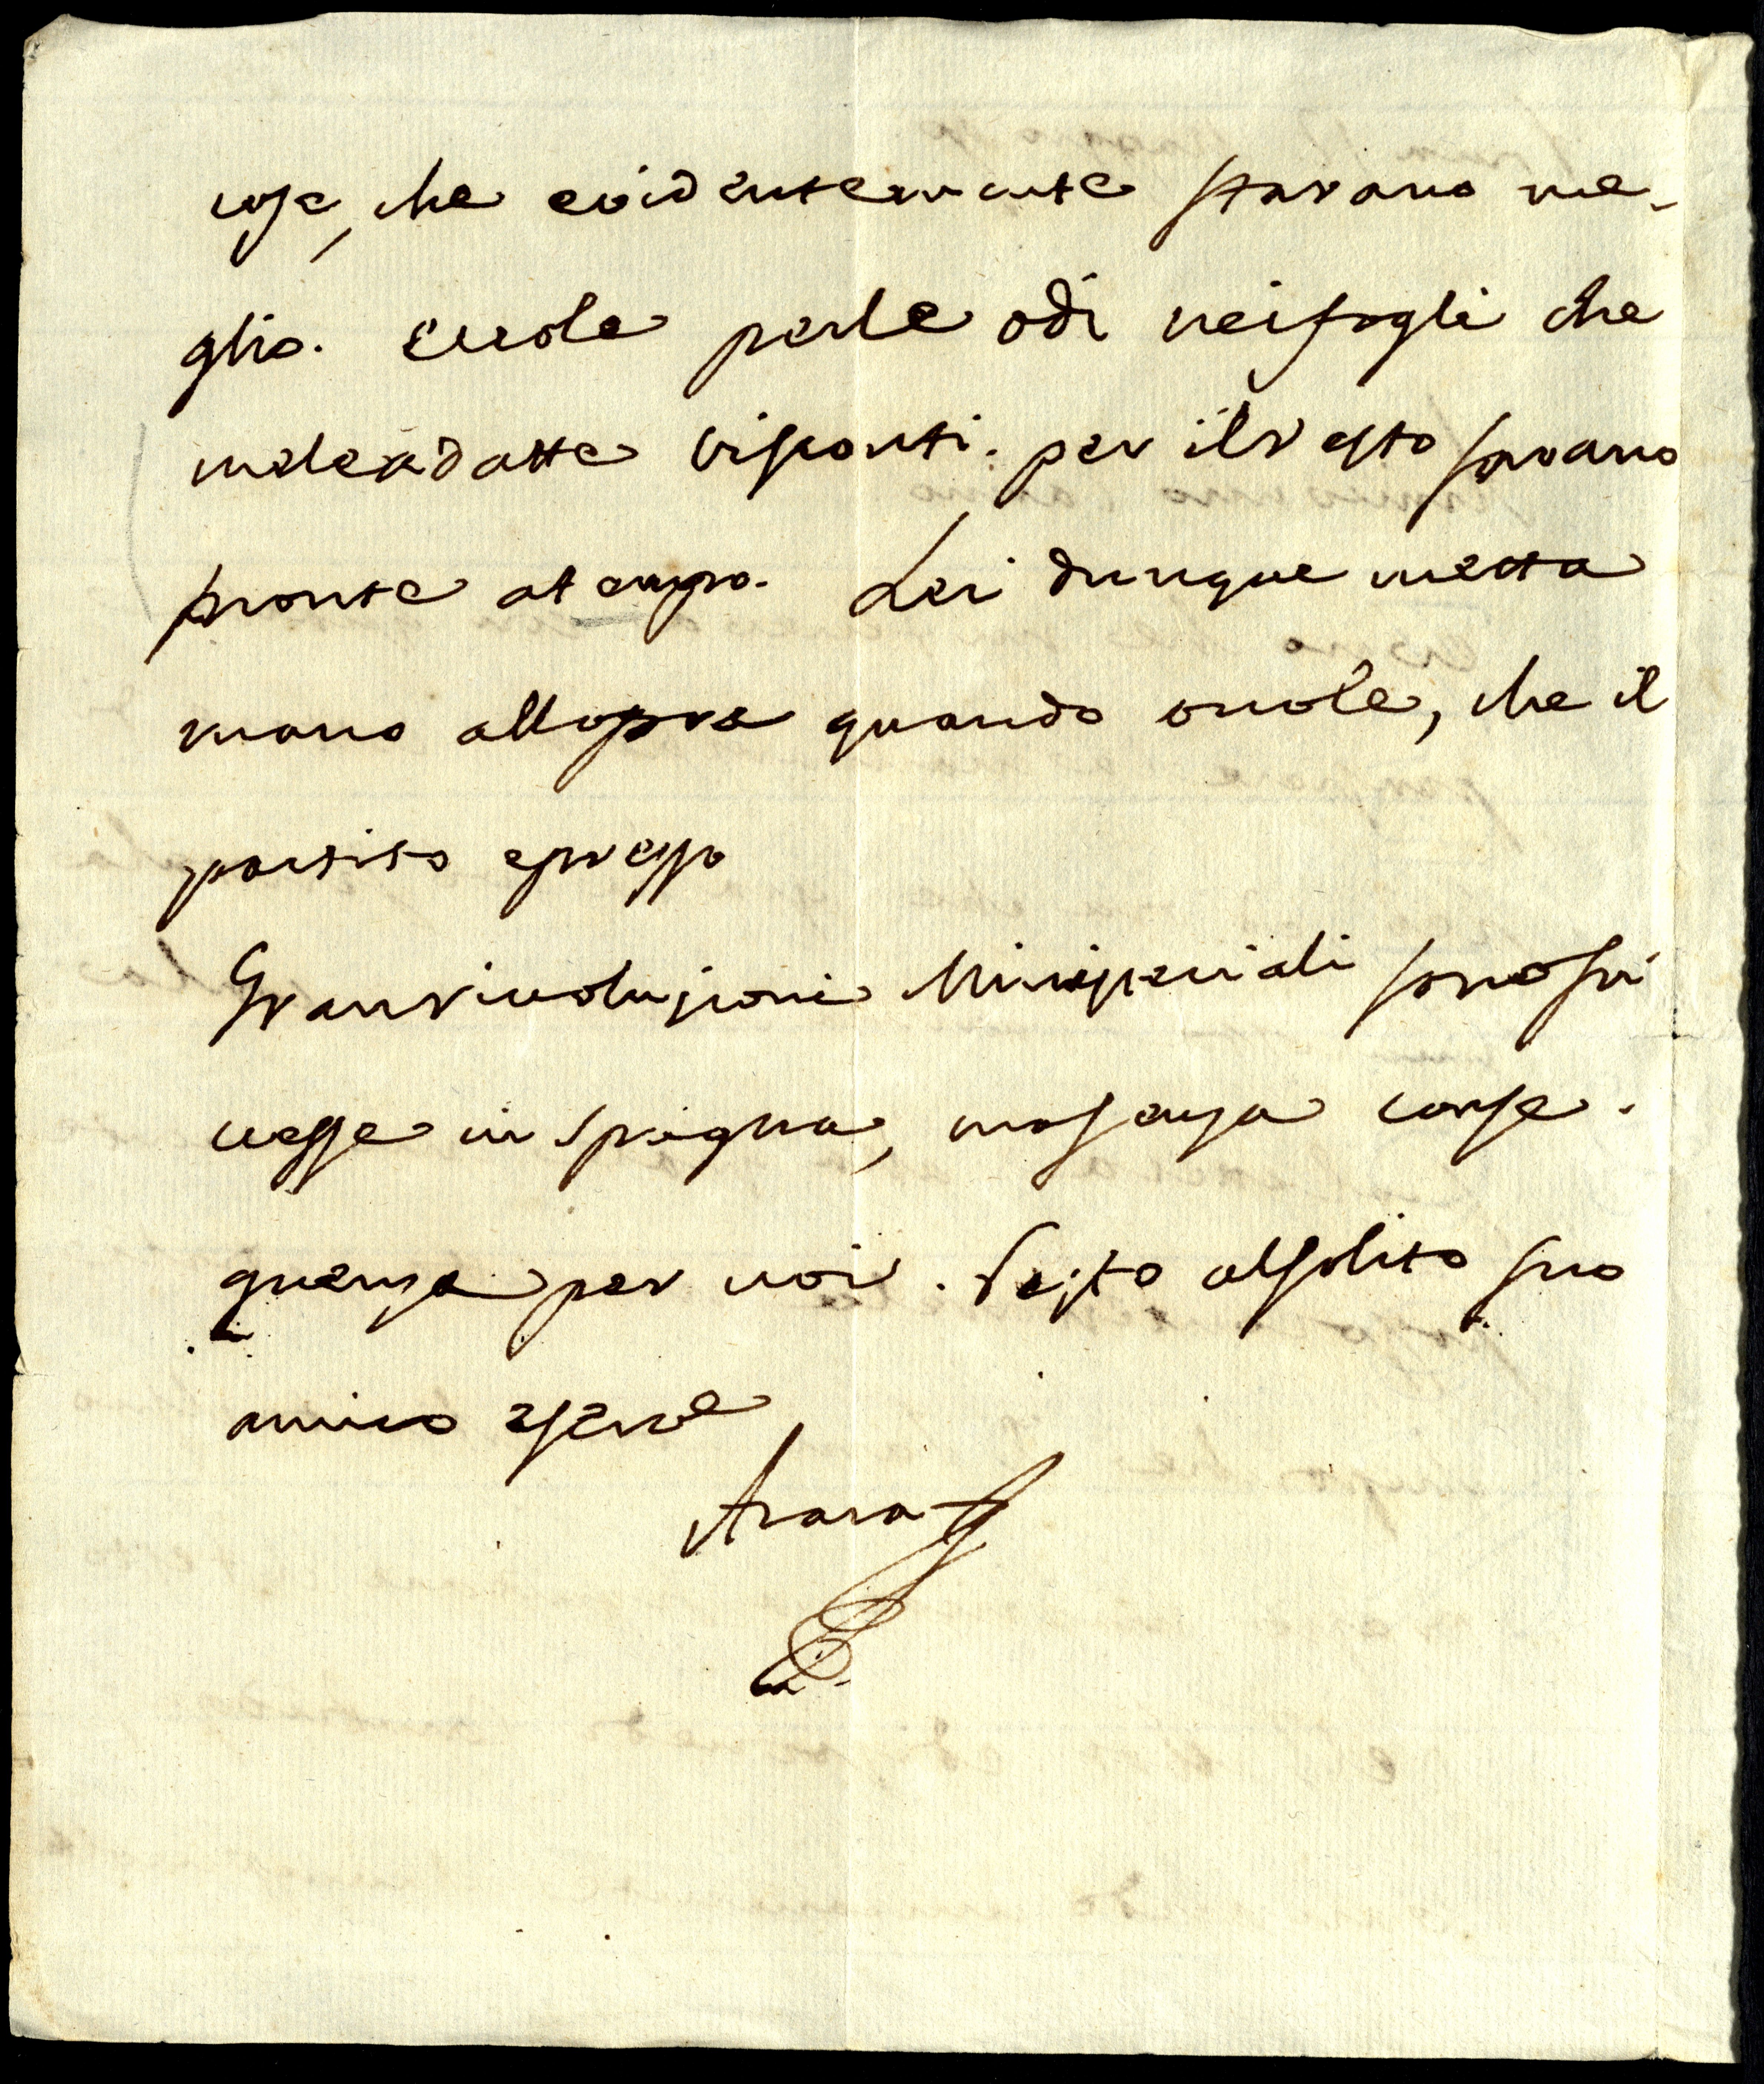 cose, che evidentemente stavano me-
glio. Eccole perle odi neifogli che
meleadatte risponti. per ilresto saranno
pronte atempo. Lei dunque metta
mano allopra quando vuole, che il
partito epresso
Granrivoluzioni Ministeriali sonosu
cesse in Spagna, masenza conse-
guenza per noi. Resto alsolito suo
amico eserve
Azara